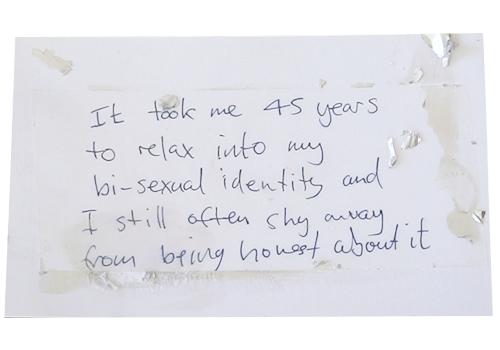 It took me 45 years
to relax into my
bi-sexual identity and
I still often shy away
from being honest about it